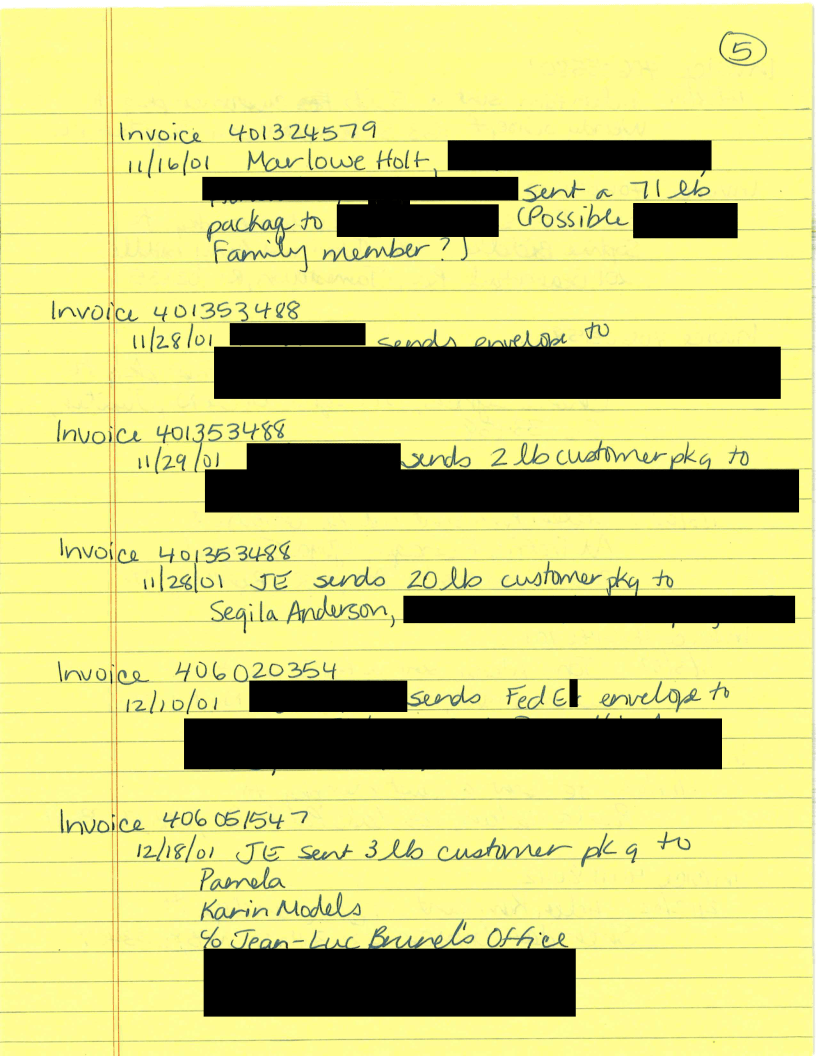 5
Invoice 401324579
11/16/01 Marlowe Holt,
sent a 71 lb
packag to (Possible
Family member?)
Invoice 401353488
11/28/01 sends envelope to
Invoice 401353488
11/29/01 sends 2 lb customer pkg to
Invoice 401353488
11/28/01 JE sends 20 lb customer pkg to
Segila Anderson,
Invoice 406020354
12/10/01 sends Fed E envelope to
Invoice 406051547
12/18/01 JE sent 3 lb customer pkg to
Pamela
Karin Models
c/o Jean-Luc Brunel's Office